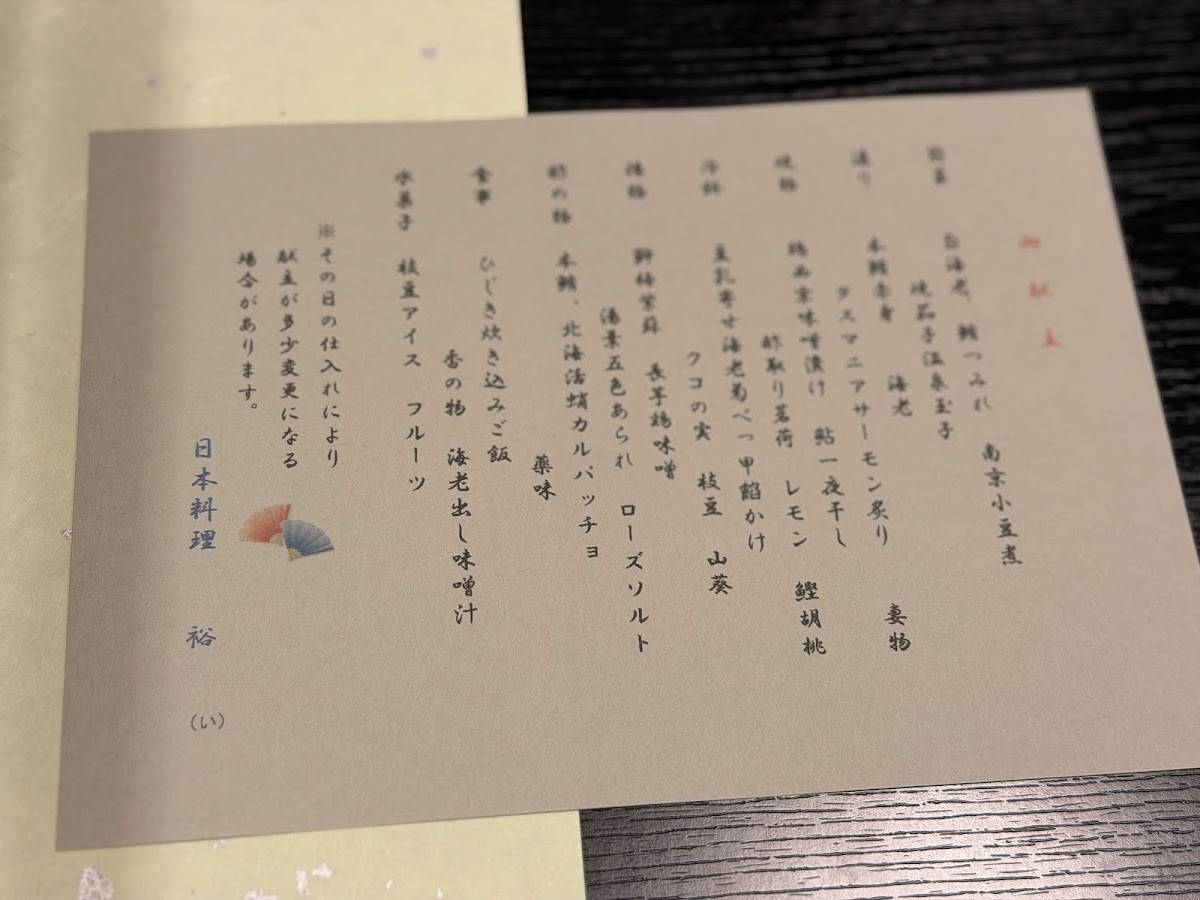 御献立
白海老、鮪つみれ 南京小豆煮
焼茄子温泉玉子
造り 本鮪赤身 海老 妻物
タスマニアサーモン炙り
焼格 西京味噌漬け 鮎一夜干し
酢取り茗荷 レモン 鰹胡桃
冷鉢 豆乳寄せ海老菊べっ甲餡かけ
クコの実 枝豆 山葵
紫蘇 長芋 味噌
五色あられ ローズソルト
酢の格 本鮪、北海活蛸カルパッチョ
薬味
食事 ひじき炊き込みご飯
香の物 海老出し味噌汁
水菓子 枝豆アイス フルーツ
※その日の仕入れにより
献立が多少変更になる
場合があります。
日本料理 裕 (い)